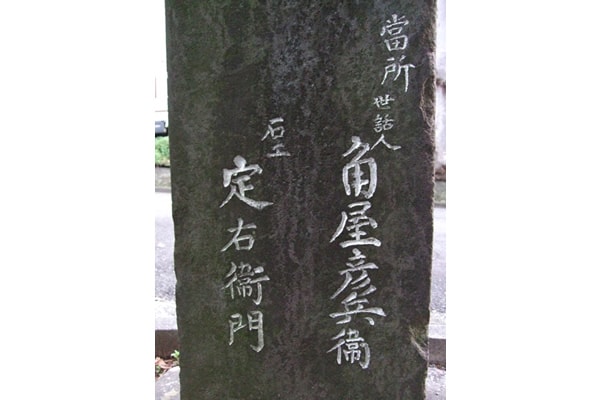 當所世話人
角屋彦兵衞
石工
定右衛門